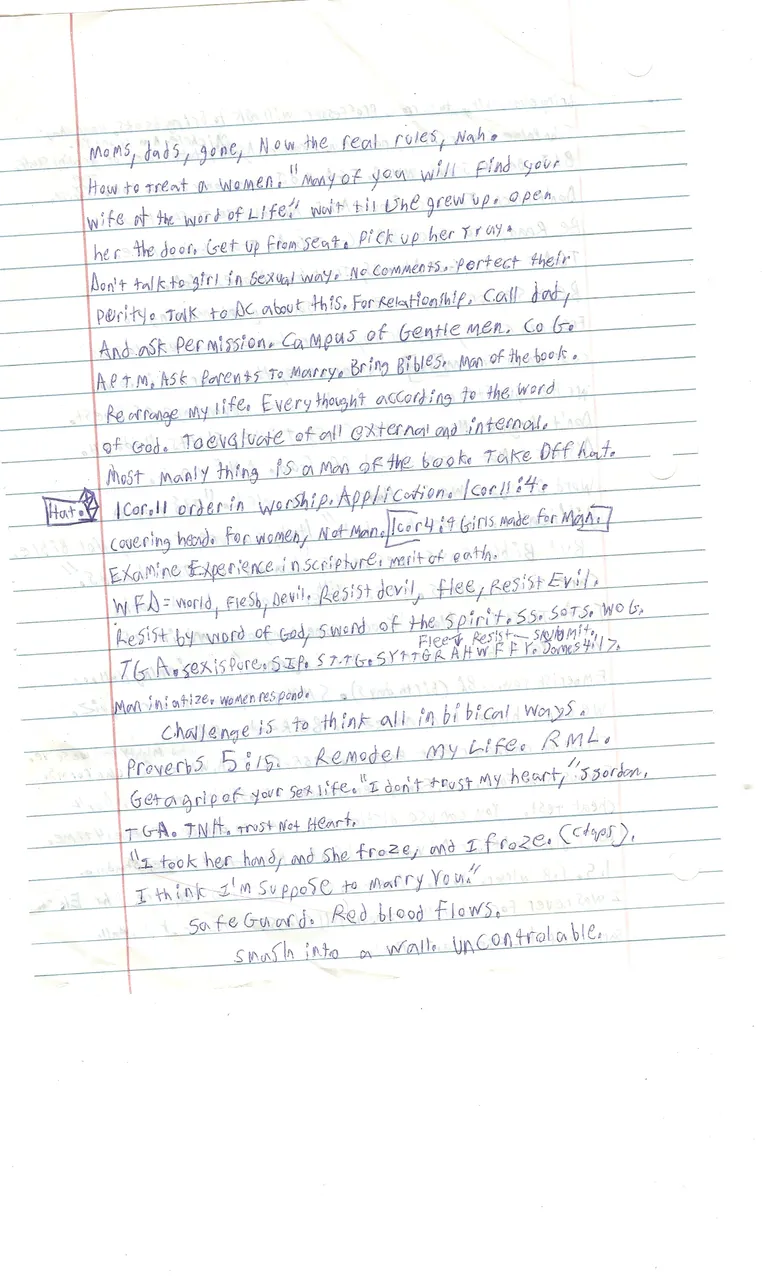 Moms, dads, gone, Now the real rules, Nah.
How to treat a women. "Many of you will find your
wife at the word of Life." wait til she grew up. open
her the door. Get up from seat. Pick up her tray.
Don't talk to girl in sexual way. No comments. Pertect their
Perity. Talk to DC about this. For Relationship. Call dad,
And ask permission. Campus of Gentle men. Co Go
AP+M. Ask Parents to Marry. Bring Bibles. Man of the book.
Rearrange my life. Every thought according to the word
of God. To evaluate of all external and internal.
Most manly thing is a man of the book. Take Off hat.
Hat. 1Cor.11 order in worship. Application. 1Cor11:4.
covering head. For women, Not Man. 1cor4:9 Girls made for Man.
Examine Experience in scripture. merit of oath.
W.F.D = World, Flesh, Devil. Resist devil, flee, Resist Evil.
Resist by word of God, Sword of the Spirit. SS. SOTS. WOG.
Flee Resist - Submit.
TGA. sex is pure. SIP. ST.TG. SYTTGRAHWFFY. James 4:17.
Man iniatize. women respond.
Challenge is to think all in bibical ways.
Proverbs 5:15. Remodel my Life. RML.
Get a grip of your sex life. "I don't trust my heart," JJordon.
TGA. TNH. Trust Not Heart.
"I took her hand, and she froze, and I froze. (claps).
I think I'm suppose to marry You."
Safe Guard. Red blood flows.
smash into a wall. Uncontrolable.